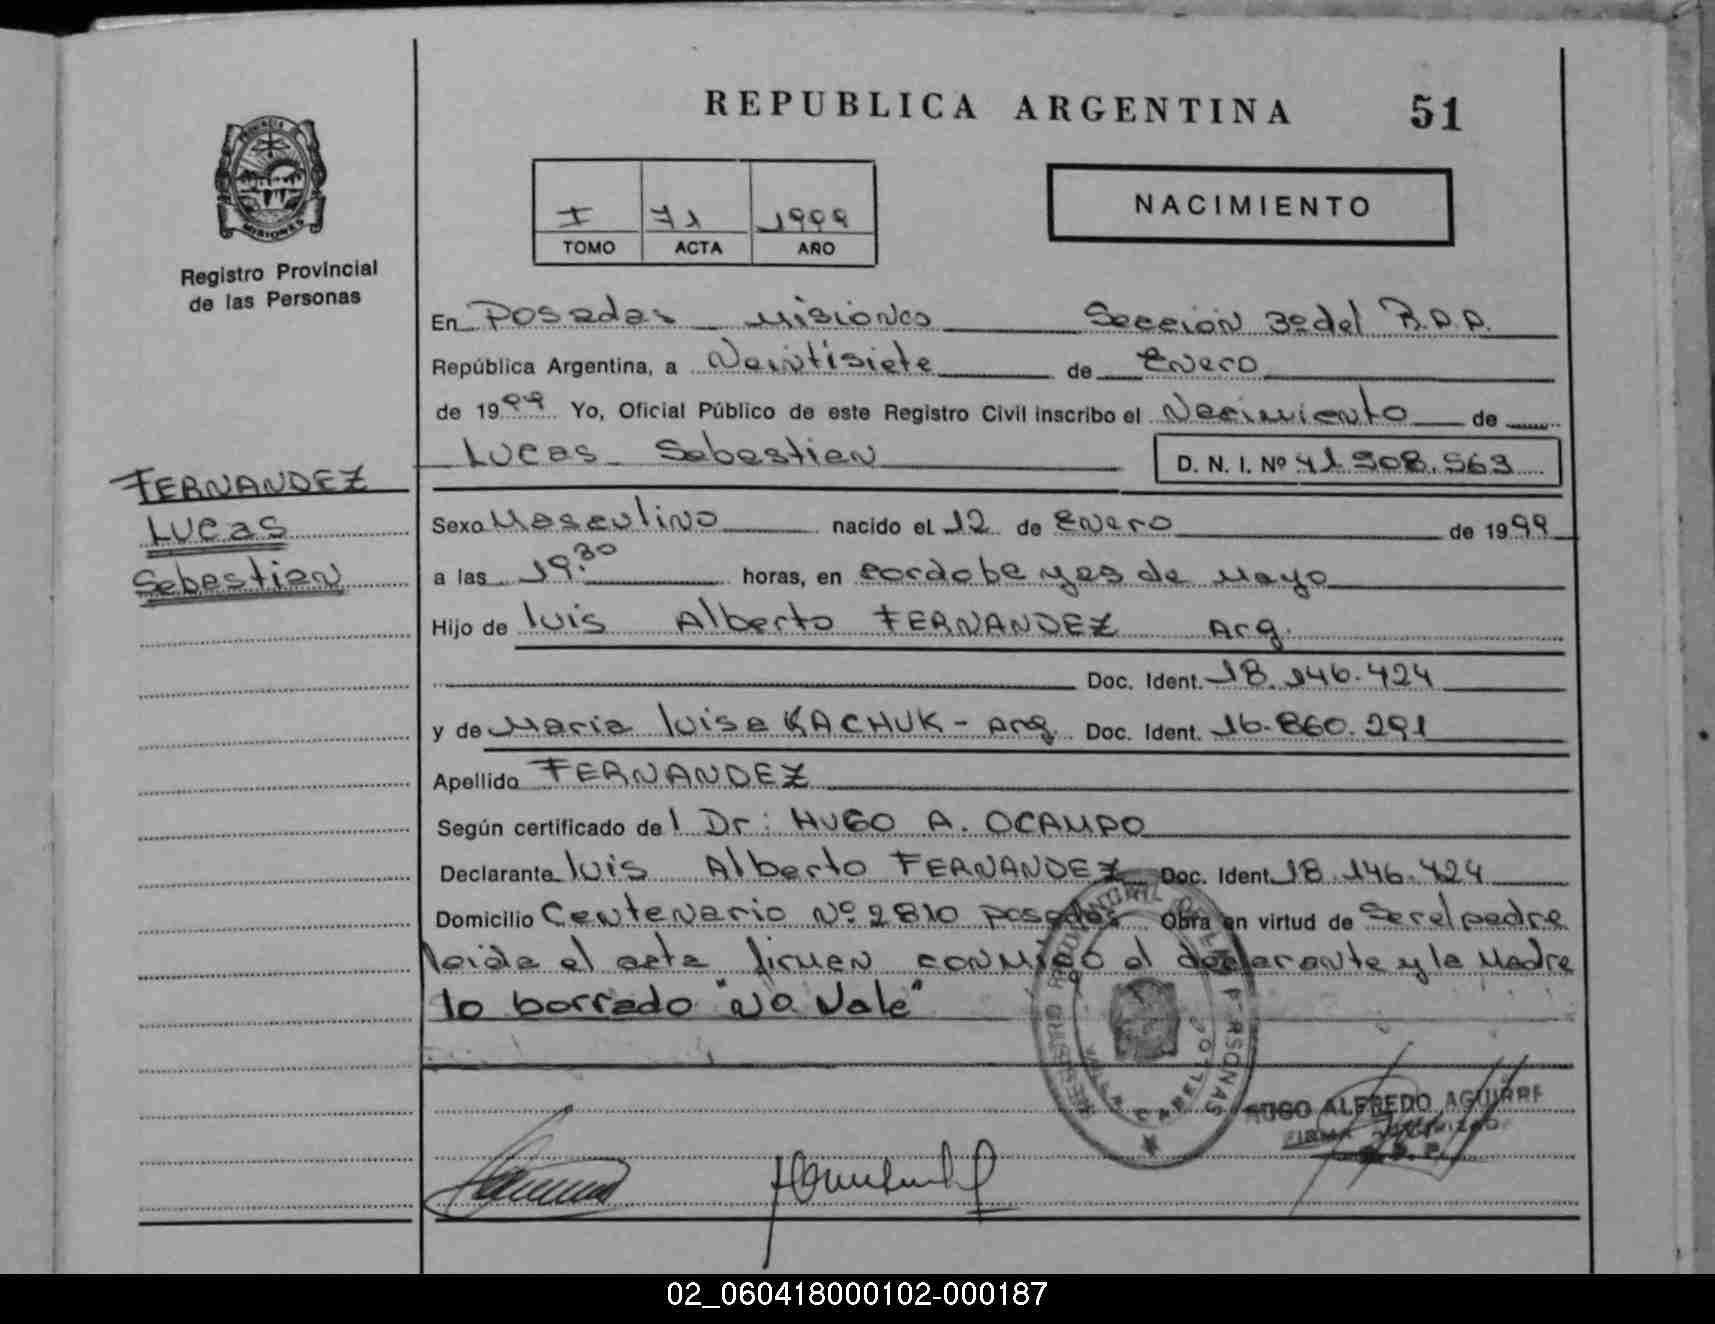 REPUBLICA ARGENTINA 51
PROVINCIA DE
MISIONES
Registro Provincial
de las Personas
I 71 1999
TOMO ACTA AÑO
NACIMIENTO
En Posadas Misiones Sección 3º del R.P.P.
República Argentina, a Veintisiete de Enero
de 1999 Yo, Oficial Público de este Registro Civil inscribo el Nacimiento de
Lucas Sebastian D. N. I. Nº 41.908.563
FERNANDEZ
Lucas
Sebastian
Sexo Masculino nacido el 12 de Enero de 1999
a las 19.30 horas, en cordoba y 25 de Mayo
Hijo de Luis Alberto FERNANDEZ Arg.
Doc. Ident. 18.146.424
y de Maria Luisa KACHUK - Arg. Doc. Ident. 16.860.291
Apellido FERNANDEZ
Según certificado de l Dr: HUGO A. OCAMPO
Declarante Luis Alberto FERNANDEZ Doc. Ident. 18.146.424
Domicilio Centenario Nº 2810 posadas Obra en virtud de Ser el padre
leida el acta firman conmigo el declarante y la Madre
lo borrado "No Vale"
REGISTRO PROVINCIAL DE LAS PERSONAS
VILLA CABELLO
HUGO ALFREDO AGUIRRE
FIRMA
02_060418000102-000187